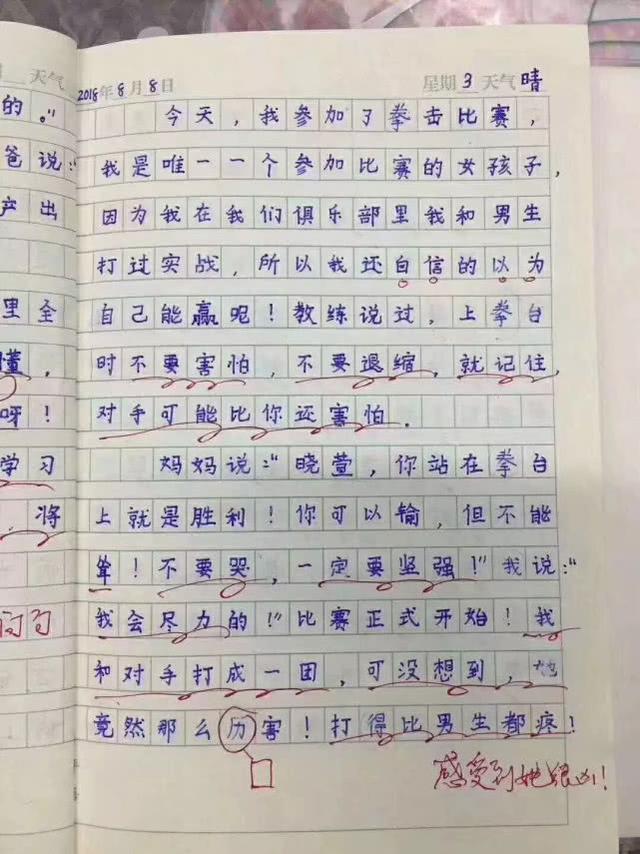 天气
的。”
爸说:“
产出
里全
懂，
呀！
学习
将
2018年8月8日 星期3天气晴
今天，我参加了拳击比赛，
我是唯一一个参加比赛的女孩子，
因为我在我们俱乐部里我和男生
打过实战，所以我还自信的以为
自己能赢呢！教练说过，上拳台
时不要害怕，不要退缩，就记住，
对手可能比你还害怕.
妈妈说:“晓萱，你站在拳台
上就是胜利！你可以输，但不能
耸！不要哭，一定要坚强！”我说:“
我会尽力的！”比赛正式开始！我
和对手打成一团，可没想到，她
竟然那么历害！打得比男生都疼！
感受到她很凶！